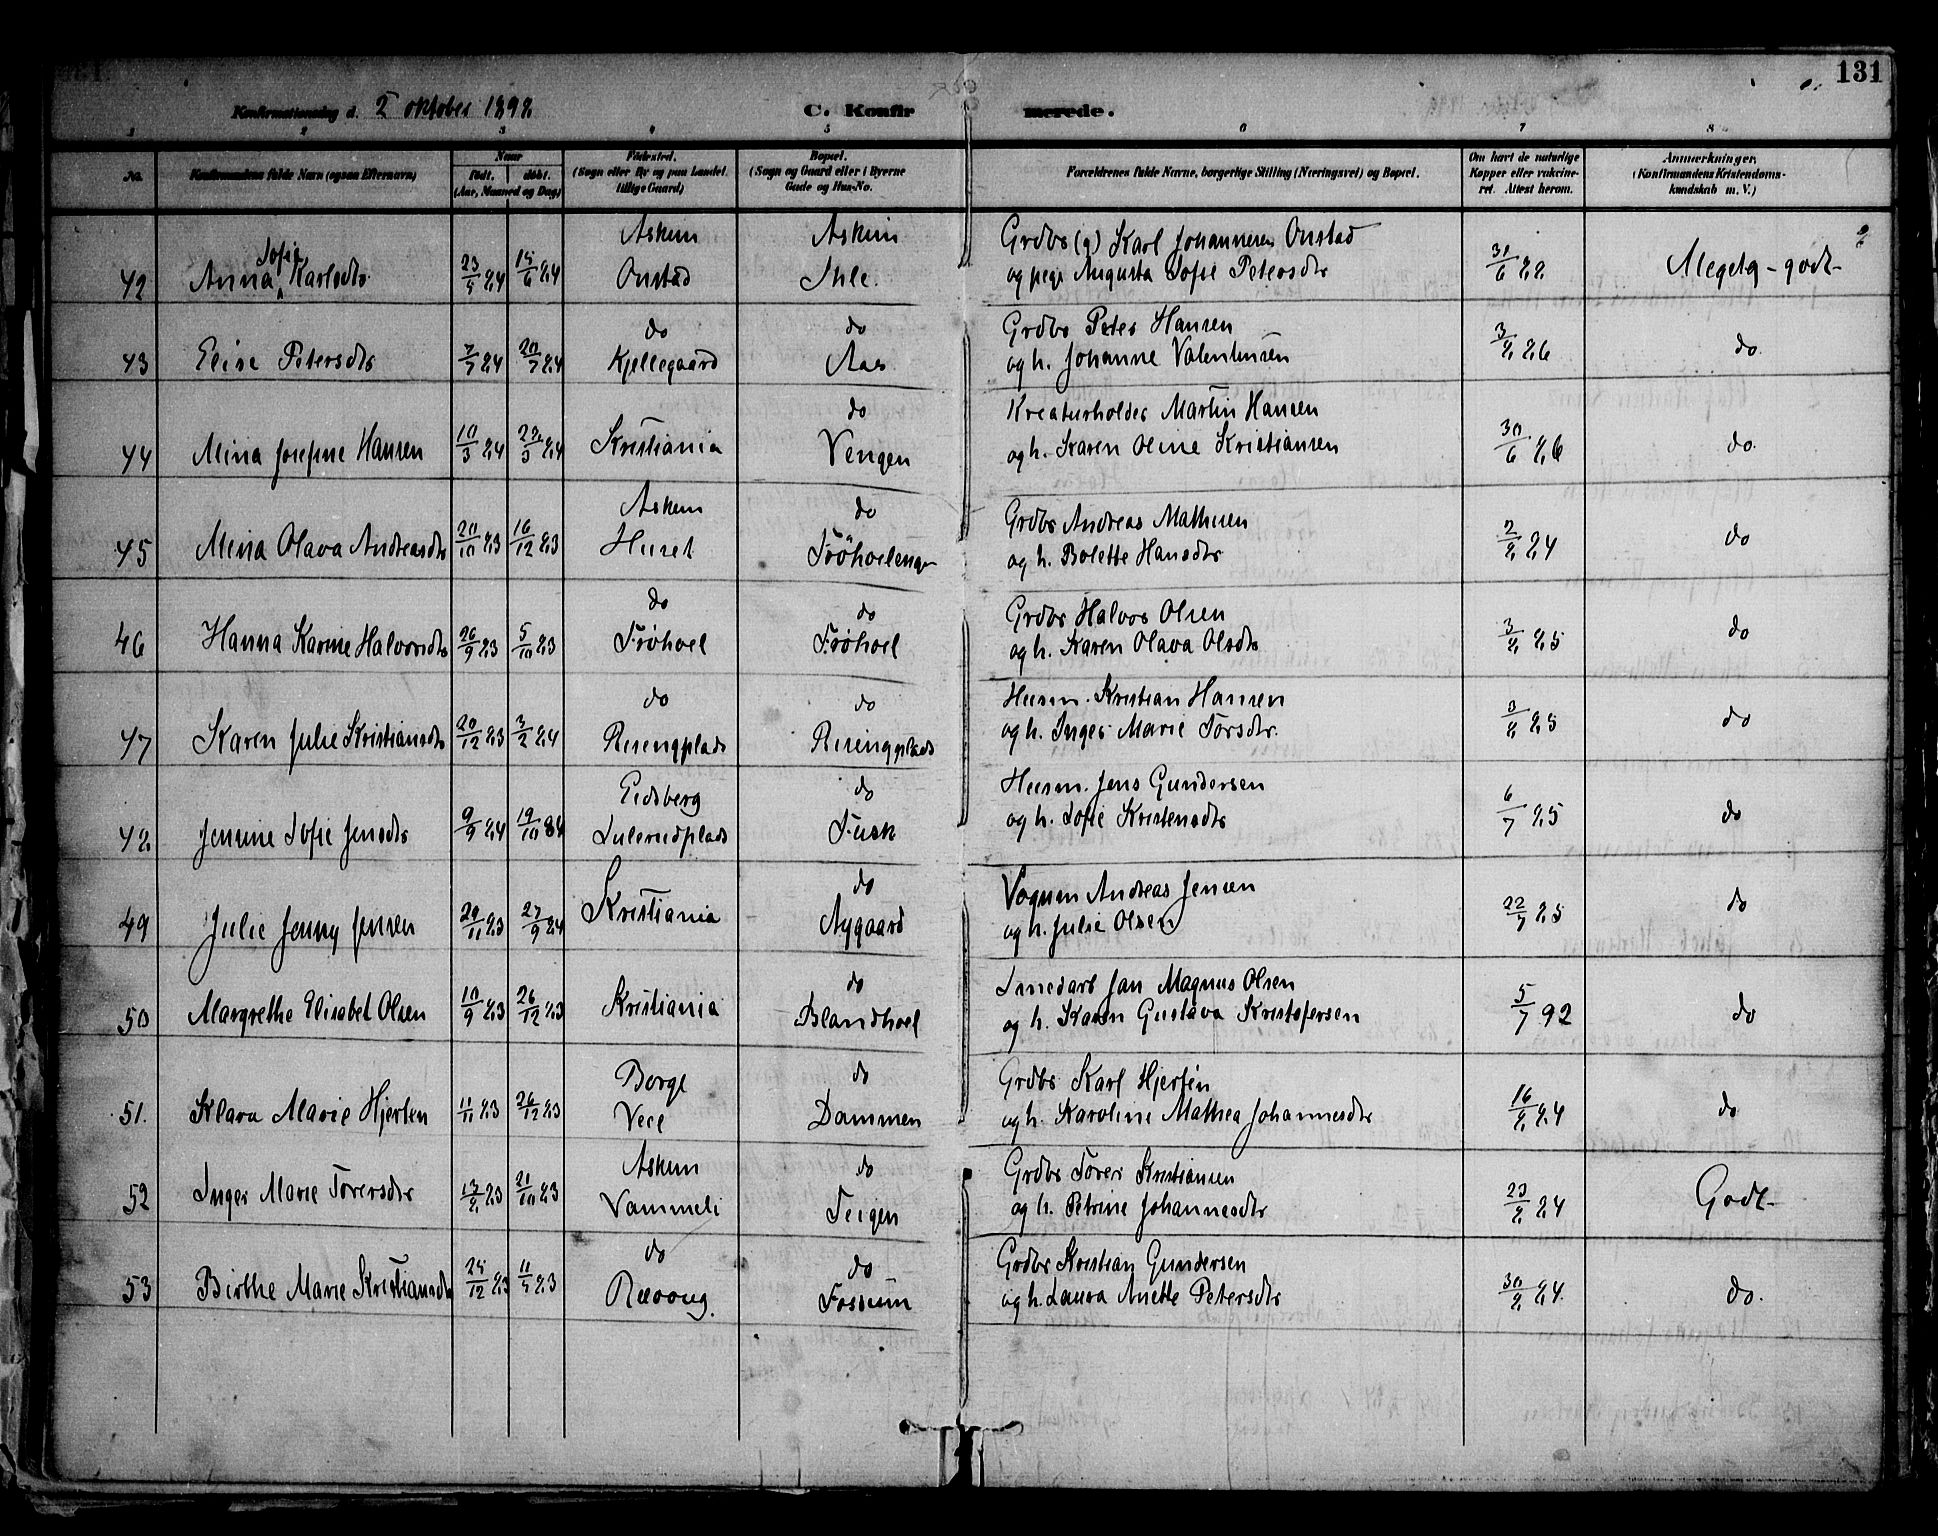 131
Konfirmationsdag d. 2 oktober 1898.
C. Konfirmerede.
1 2 3 4 5 6 7 8
No.
Konfirmandens fulde Navn (ogsaa Efternavn)
Naar
født. døbt.
(Aar, Maaned og Dag)
Fødested.
(Sogn eller By og paa Landet tillige Gaard)
Bopæl.
(Sogn og Gaard eller i Byerne Gade og Hus-No.
Forældrenes fulde Navne, borgerlige Stilling (Næringsvei) og Bopæl.
Om havt de naturlige Kopper eller vakcineret. Attest herom.
Anmerkninger.
(Konfirmandens Kristendomskundskab m. V.)
42 Anna Sofie Karlsdtr 23/5 84 15/6 84 Askim Onstad Askim Ihle. Grdbr (g) Karl Johannesen Onstad
og pige Augusta Sofie Petersdtr 31/6 88 Meget godt
43 Elise Petersdtr 7/7 84 20/7 84 do Kjellegaard do Aas Grdbr Peter Hansen
og h. Johanne Valentinsen 3/8 86 do.
44 Mina Josefine Hansen 10/3 84 23/3 84 Kristiania do Vengen Kreaturholder Martin Hansen
og h. Karen Oline Kristiansen 30/6 86 do.
45 Mina Olava Andreasdtr 20/10 83 16/12 83 Askim Huset do Frøhoelengen Grdbr Andreas Mathisen
og h. Bolette Hansdtr 2/8 84 do
46 Hanna Karine Halvorsdtr 26/9 83 5/10 83 do Frøhoel do Frøhoel Grdbr Halvor Olsen
og h. Karen Olava Olsdtr 3/8 85 do
47 Karen Julie Kristiansdtr 20/12 83 3/2 84 do Risingplads do Risingplads Husm. Kristian Hansen
og h. Inger Marie Torsdtr. 3/8 85 do
48 Jensine Sofie Jensdtr 9/9 84 19/10 84 Eidsberg Luleredplads do Fusk Husm. Jens Gundersen
og h. Sofie Kristensdtr 6/7 85 do
49 Julie Jenny Jensen 29/11 83 27/9 84 Kristiania do Nygaard Vognm Andreas Jensen
og h. Julie Olsen 22/7 85 do
50 Margrethe Elisabet Olsen 10/9 83 26/12 83 Kristiania do Blandhoel Smedarb Jan Magnus Olsen
og h. Karen Gustava Kristofersen 5/7 92 do
51. Klara Marie Hjerten 11/11 83 26/12 83 Borge Veel do Dammen Grdbr Karl Hjertén
og h. Karoline Mathea Johannesdtr 16/8 84 do
52 Inger Marie Torersdtr 13/8 83 21/10 83 Askim Vammeli do Teigen Grdbr Torer Kristiansen
og h. Petrine Johannesdtr 23/8 84 Godt
53 Birthe Marie Kristiansdtr 25/12 83 11/5 83 do do Fossum Grdbr Kristian Gundersen
og h. Laura Anette Petersdtr 30/8 84. do.